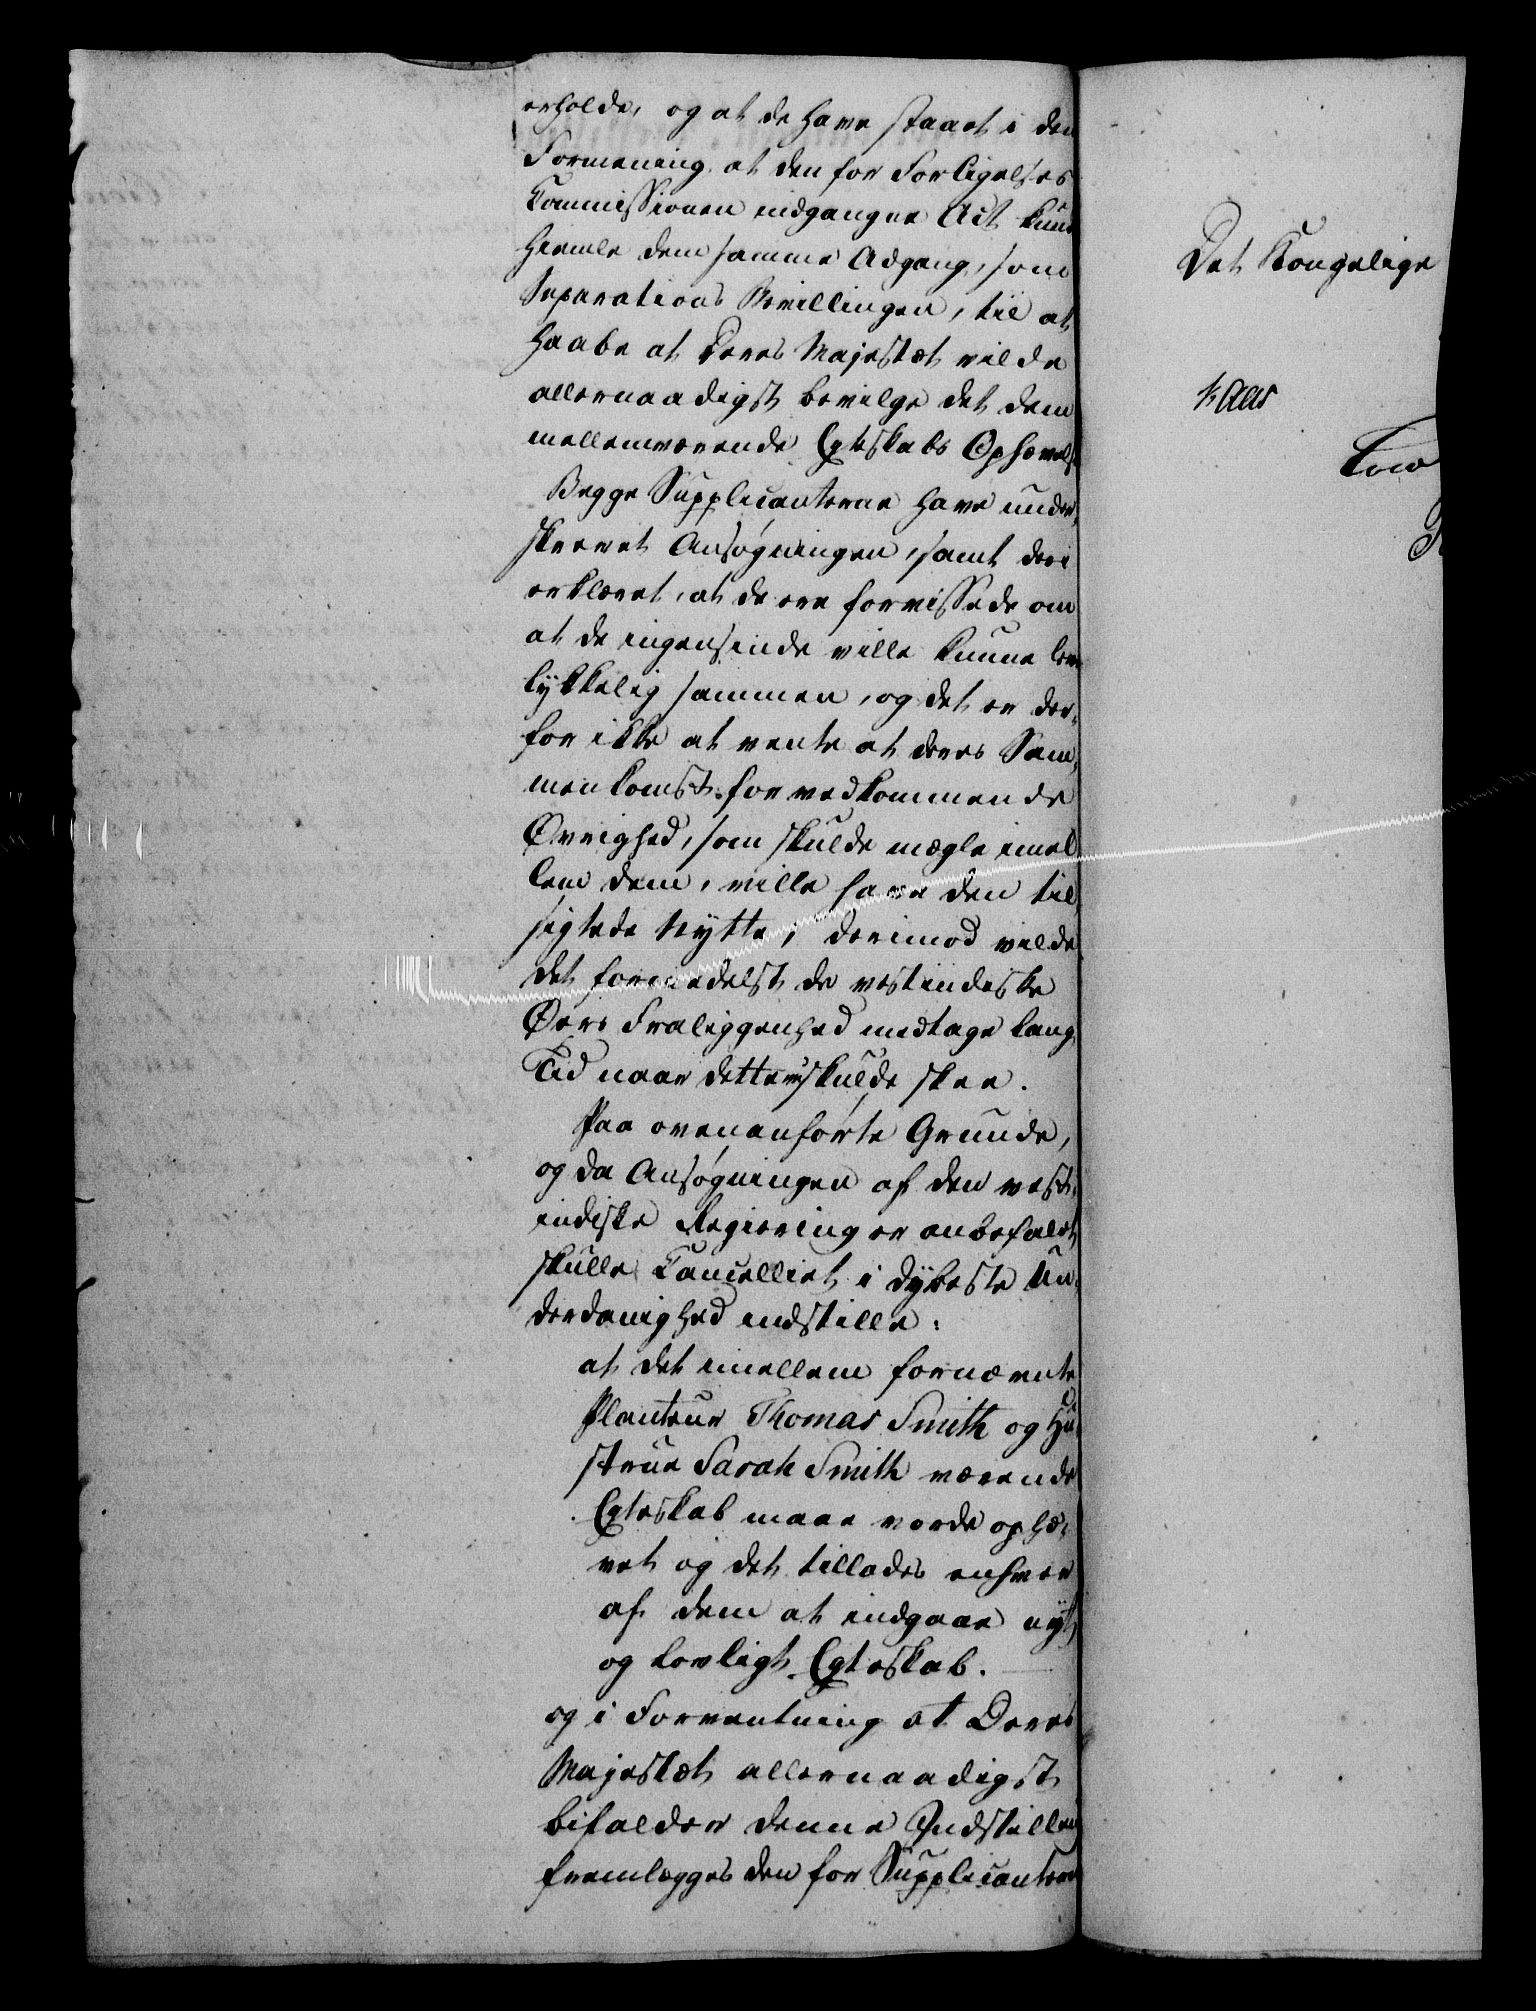 erholde, og at de have staaet i den
Formening, at den for Forligelses
Commissionen indgangne Act kunde
hiemle dem samme Adgang, som
Separations Bevillingen, til at
haabe at Deres Majestæt vilde
allernaadigst bevilge det dem
mellemværende Egteskabs Ophævelse
Begge Supplicanterne have under-
skrevet Ansøgningen, samt deri
erklæret, at de ere forvissede om
at de ingensinde ville kunne leve
lykkelig sammen, og det er der-
for ikke at vente at deres Sam-
menkomst for vedkommende
Øvrighed, som skulde mægle imel
lem dem, ville have den til
sigtede Nytte; derimod vilde
det formedelst de vestindiske
Øers Fraliggenhed medtage lang
Tid naar dette skulde skee.
Paa ovenanførte Grunde,
og da Ansøgningen af den vest-
indiske Regiering er anbefalet
skulle Cancelliet i dybeste Un-
derdanighed indstille:
at det imellem fornævnte
Planteur Thomas Smith og Hu-
strue Sarah Smith værende
Egteskab maae vorde ophæ-
vet og det tillades enhver
af dem at indgaae nyt
og lovligt Egteskab.
og i Forventning at Deres
Majestæt allernaadigst
bifalder denne Indstilling
fremlægges den for Supplicanterne
Det Kongelige
Kaas
Cold